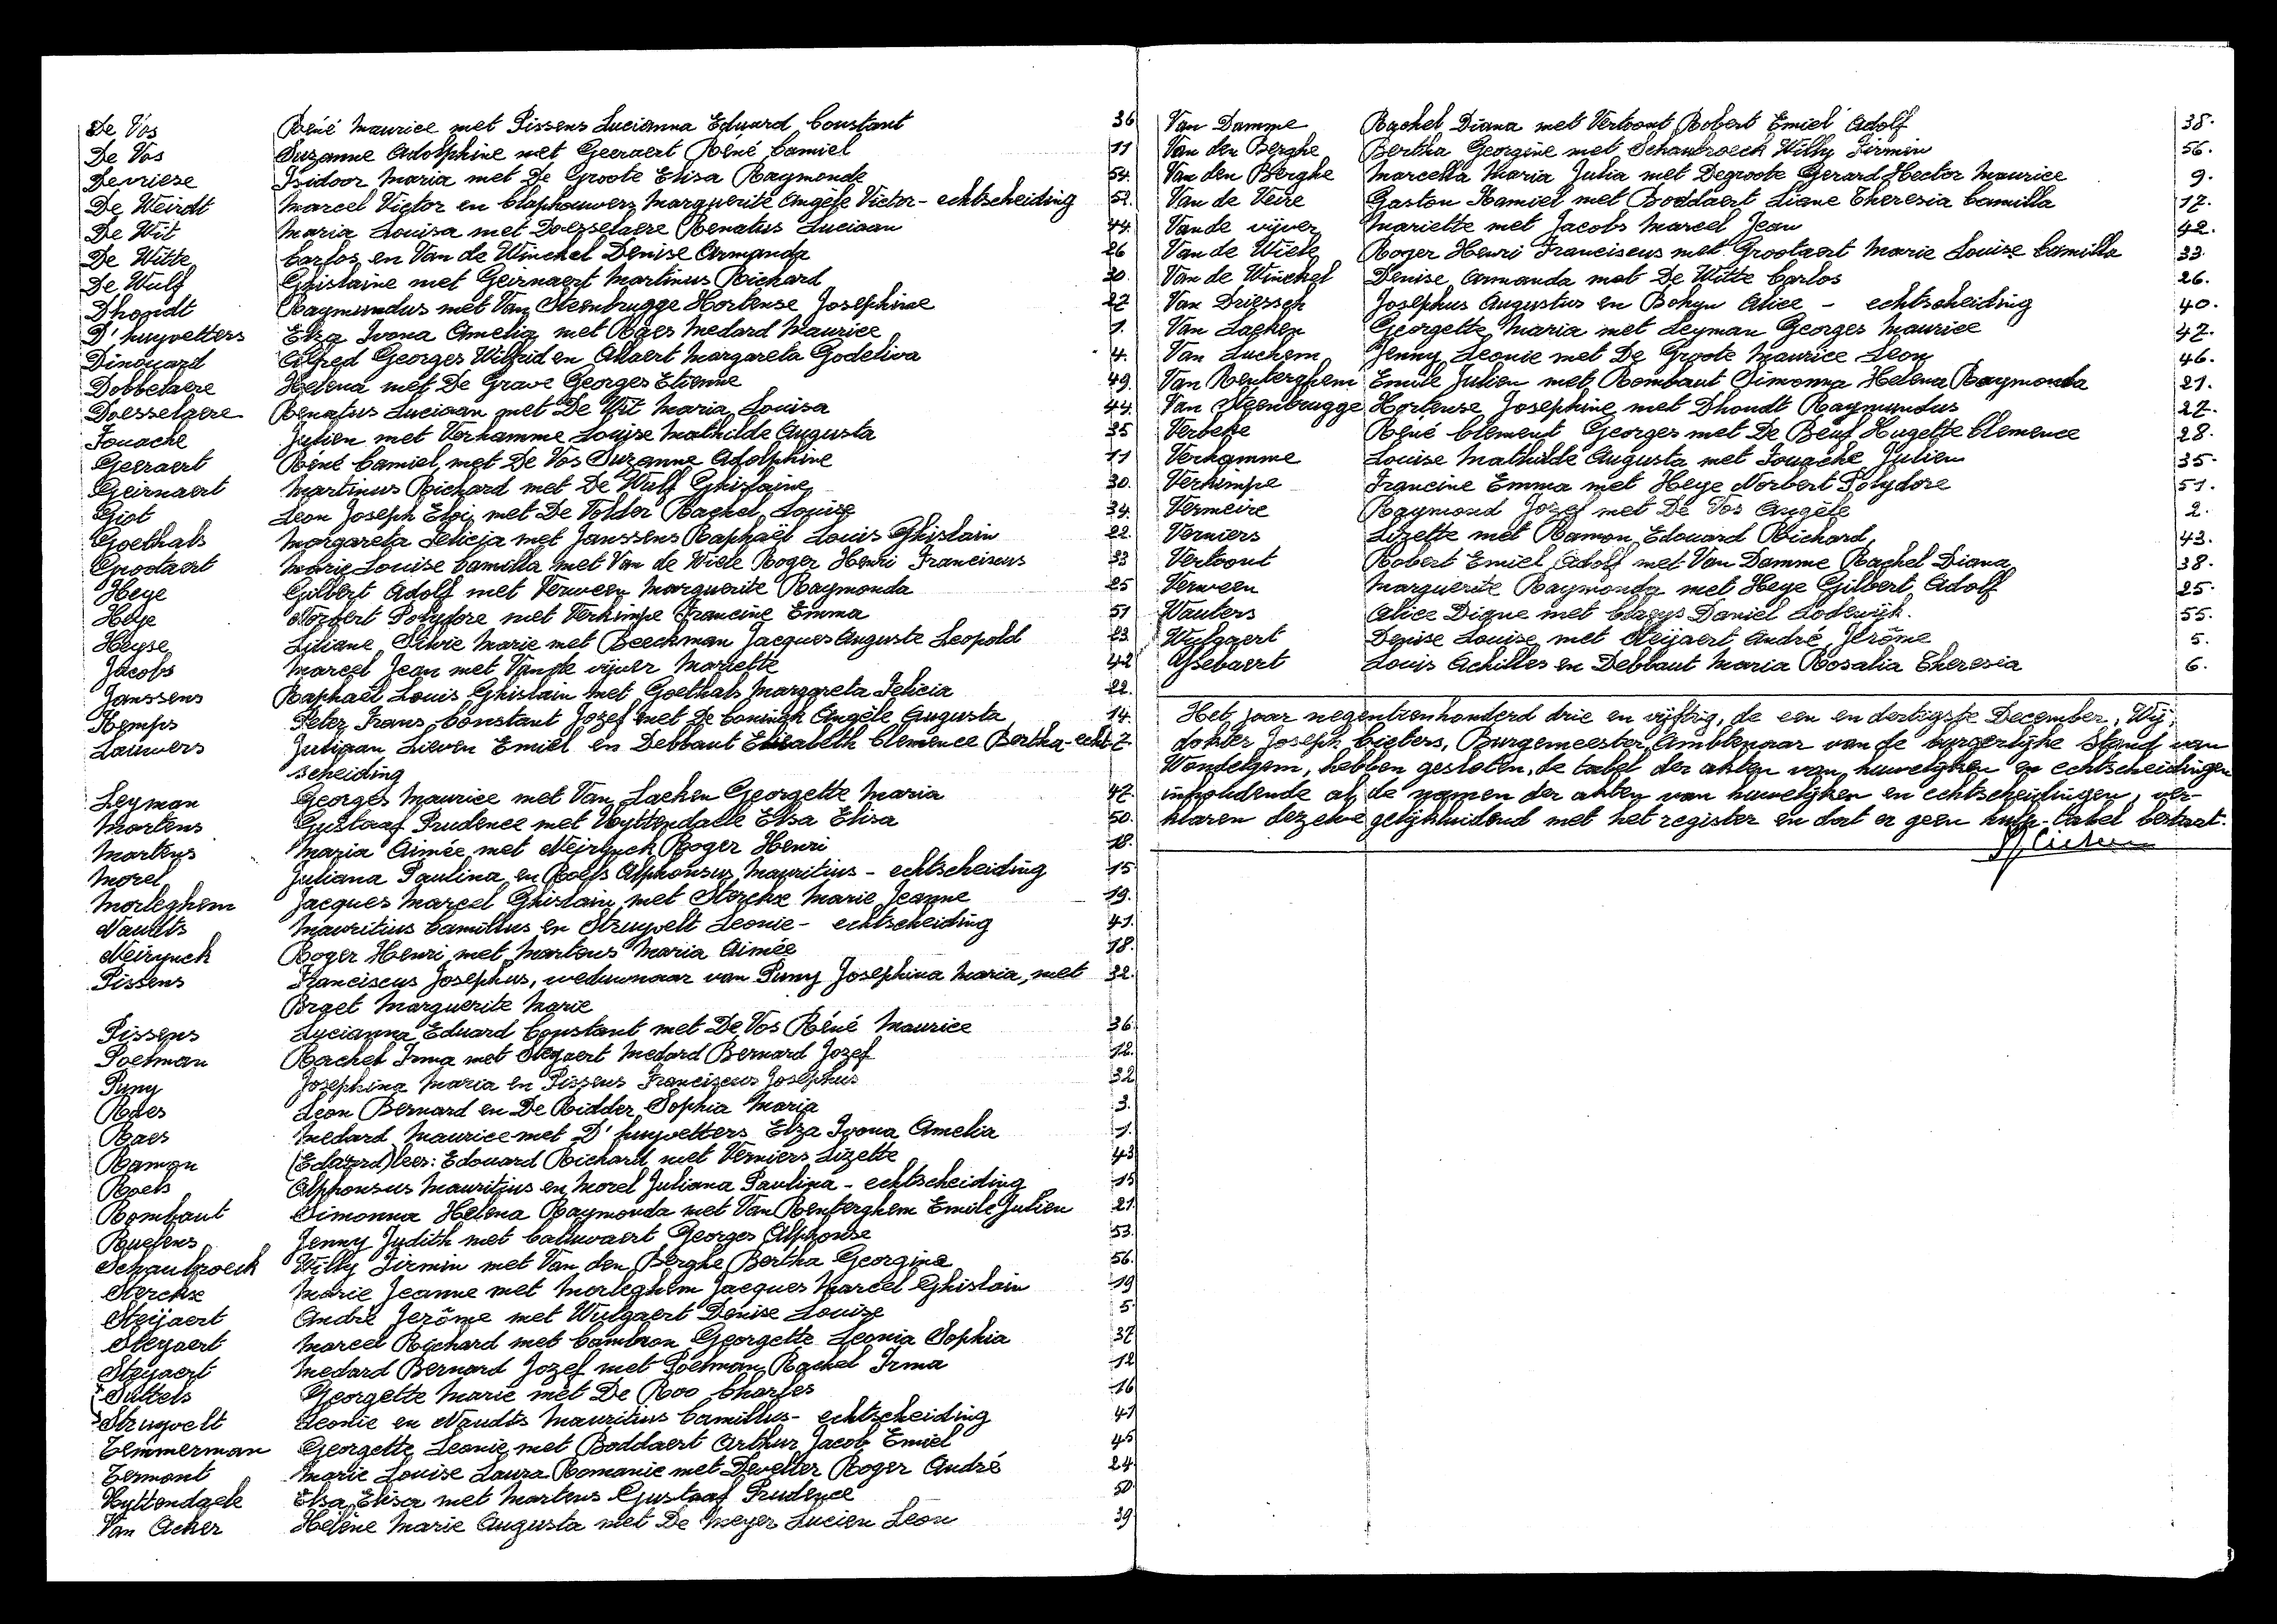 De Vos René Maurice met Pissens Lucianna Eduard Constant 36
De Vos Suzanne Adolphine met Geeraert René Camiel 11
Devriese Isidoor Maria met De Groote Elisa Raymonde 54.
De Weirdt Marcel Victor en Claphouwers Marguerite Angèle Victor - echtscheiding 52.
De Wit Maria Louisa met Doesselaere Renatus Luciaan 44.
De Witte Carlos en Van de Winckel Denise Armanda 26
De Wulf Ghislaine met Geirnaert Martinus Richard 30.
Dhondt Raymundus met Van Steenbrugge Hortense Josephine 27
D'huyvetters Elza Ivona Amelia met Raes Medard Maurice 1.
Dinouard Alfred Georges Wilfrid en Allaert Margareta Godeliva 4.
Dobbelaere Helena met De Grave Georges Etienne 49.
Doesselaere Renatus Luciaan met De Wit Maria Louisa 44.
Fouache Julien met Verhamme Louise Mathilde Augusta 35
Geeraert René Camiel met De Vos Suzanne Adolphine 11
Geirnaert Martinus Richard met De Wulf Ghislaine 30.
Giot Leon Joseph Eloi met De Tolder Rachel Louise 34.
Goethals Margareta Felicia met Janssens Raphaël Louis Ghislain 22.
Grootaert Marie Louise Camilla met Van de Wiele Roger Henri Franciscus 33
Heye Gilbert Adolf met Verween Marguerite Raymonda 25
Heye Norbert Polydore met Verkimpe Francine Emma 51
Heyse Liliane Silvie Marie met Beeckman Jacques Auguste Leopold 23.
Jacobs Marcel Jean met Van de vijver Mariette 42
Janssens Raphaël Louis Ghislain met Goethals Margareta Felicia 22.
Kemps Peter Frans Constant Jozef met De Coninck Angèle Augusta 14.
Lauwers Juliaan Lieven Emiel en Debbaut Elisabeth Clemence Bertha - echt- 7.
scheiding
Leyman Georges Maurice met Van Laeken Georgette Maria 47.
Martens Gustaaf Prudence met Uyttendaele Elsa Elisa 50.
Martens Maria Aimée met Neirynck Roger Henri 18.
Morel Juliana Paulina en Roels Alphonsus Mauritius - echtscheiding 15
Morleghem Jacques Marcel Ghislain met Sterckx Marie Jeanne 19.
Naudts Mauritius Camillus en Struyvelt Leonie - echtscheiding 41.
Neirynck Roger Henri met Martens Maria Aimée 18.
Pissens Franciscus Josephus, weduwnaar van Puny Josephina Maria, met 32.
Braet Marguerite Marie
Pissens Lucianna Eduard Constant met De Vos René Maurice 36
Poelman Rachel Irma met Steyaert Medard Bernard Jozef 12.
Puny Josephina Maria en Pissens Franciscus Josephus 32
Raes Leon Bernard en De Ridder Sophia Maria 3.
Raes Medard Maurice met D'huyvetters Elza Ivona Amelia 1.
Ramon (Edaverd) lees: Edouard Richard met Verniers Lizette 43
Roels Alphonsus Mauritius en Morel Juliana Paulina - echtscheiding 15
Rombaut Simonna Helena Raymonda met Van Renterghem Emile Julien 21.
Ruefens Jenny Judith met Caluwaert Georges Alphonse 53.
Schaubroeck Willy Firmin met Van den Berghe Bertha Georgine 56.
Sterckx Marie Jeanne met Morleghem Jacques Marcel Ghislain 19
Steijaert André Jerôme met Wulgaert Denise Louise 5
Steyaert Marcel Richard met Cambron Georgette Leonia Sophia 37
Steyaert Medard Bernard Jozef met Poelman Rachel Irma 12
Suttels Georgette Marie met De Roo Charles 16
Struyvelt Leonie en Naudts Mauritius Camillus - echtscheiding 41
Temmerman Georgette Leonie met Boddaert Arthur Jacob Emiel 45
Termont Marie Louise Laura Romanie met Develter Roger André 24
Uyttendaele Elsa Elisa met Martens Gustaaf Prudence 50
Van Acker Hélène Marie Augusta met De Meyer Lucien Leon 39
Van Damme Rachel Diana met Vertoont Robert Emiel Adolf 38.
Van den Berghe Bertha Georgine met Schaubroeck Willy Firmin 56.
Van den Berghe Marcella Maria Julia met Degroote Gerard Hector Maurice 9.
Van de Veire Gaston Kamiel met Boddaert Liane Theresia Camilla 17.
Van de vijver Mariette met Jacobs Marcel Jean 42.
Van de Wiele Roger Henri Franciscus met Grootaert Marie Louise Camilla 33.
Van de Winckel Denise Armanda met De Witte Carlos 26.
Van Driessch Josephus Augustus en Bohyn Alice - echtscheiding 40.
Van Laeken Georgette Maria met Leyman Georges Maurice 47.
Van Luchem Jenny Leonie met De Groote Maurice Leon 46.
Van Renterghem Emile Julien met Rombaut Simonna Helena Raymonda 21.
Van Steenbrugge Hortense Josephine met Dhondt Raymundus 27.
Verbeke René Clement Georges met De Beuf Hugette Clemence 28.
Verhamme Louise Mathilde Augusta met Fouache Julien 35.
Verkimpe Francine Emma met Heye Norbert Polydore 51.
Vermeire Raymond Jozef met De Vos Angèle 2.
Verniers Lizette met Ramon Edouard Richard 43.
Vertoont Robert Emiel Adolf met Van Damme Rachel Diana 38.
Verween Marguerite Raymonda met Heye Gilbert Adolf 25.
Wauters Alice Digne met Claeys Daniel Lodewijk. 55.
Wulgaert Denise Louise met Steijaert André Jerôme 5.
Ysebaert Louis Achilles en Debbaut Maria Rosalia Theresia 6.
Het jaar negentienhonderd drie en vijftig, de een en dertigste December, Wij,
dokter Joseph Cieters, Burgemeester, Ambtenaar van de burgerlijke stand van
Wondelgem, hebben gesloten, de tabel der akten van huwelijken en echtscheidingen
inhoudende al de namen der akten van huwelijken en echtscheidingen, ver-
klaren dezelve gelijkluidend met het register en dat er geen hulp-tabel bestaat.